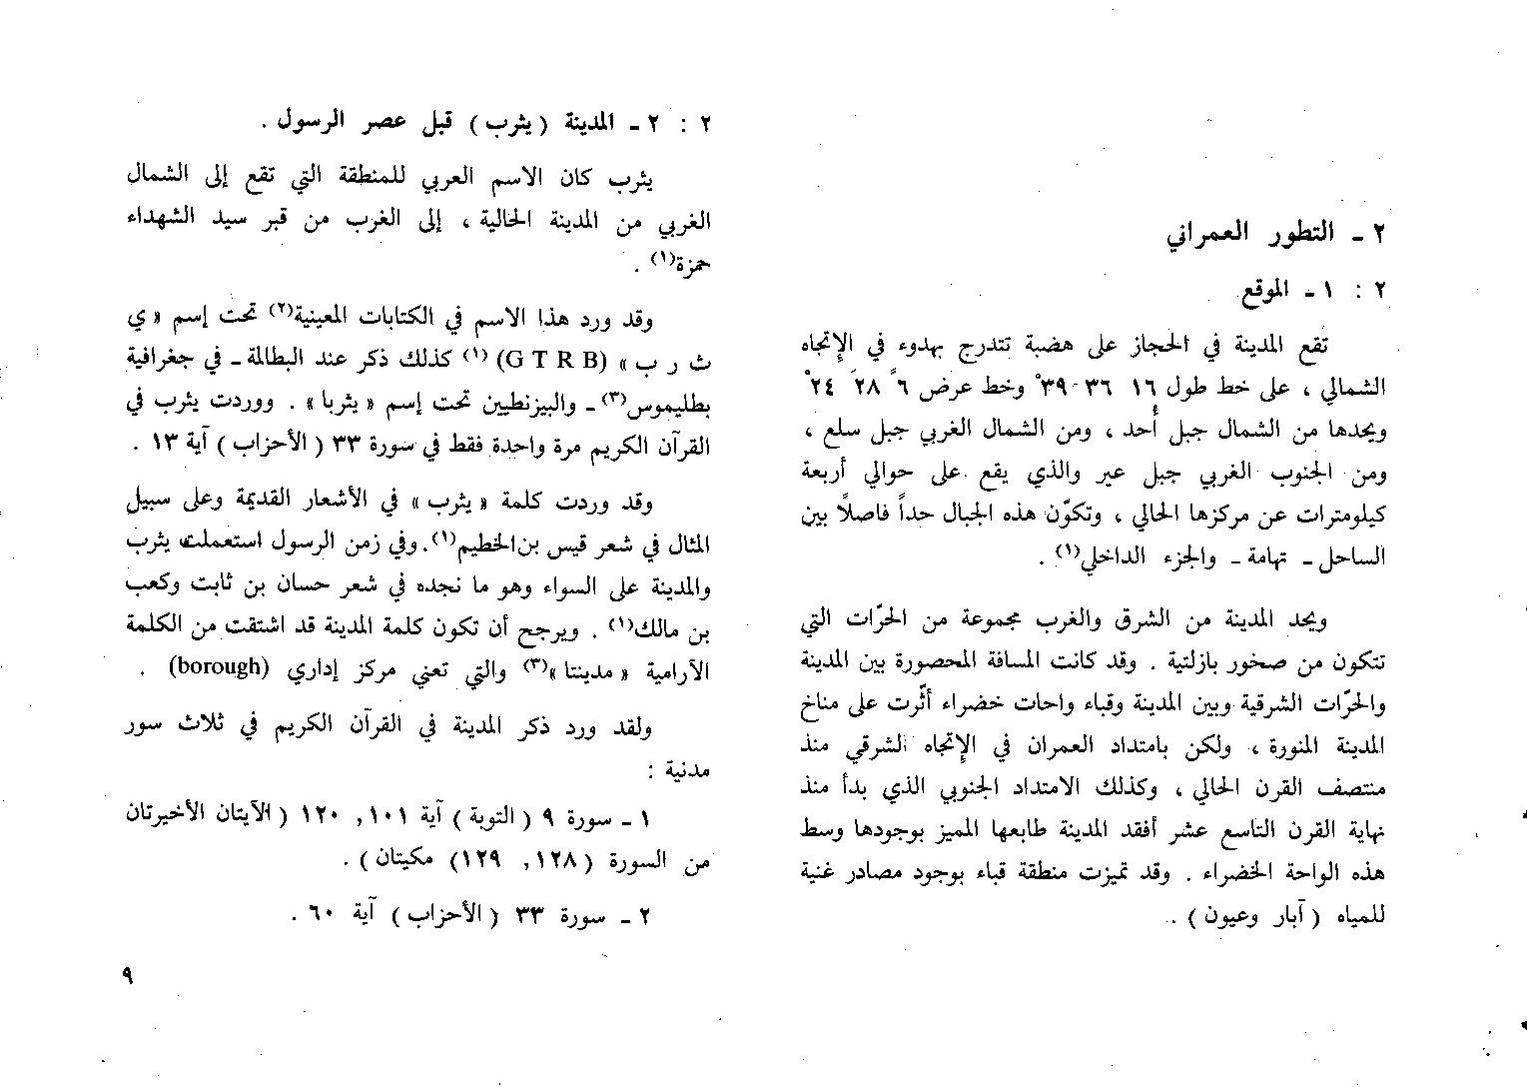 ٢ ـ التطور العمراني
٢ : ١ ـ الموقع
تقع المدينة في الحجاز على هضبة تتدرج بهدوء في الإتجاه
الشمالي ، على خط طول ١٦ ٣٦ ٣٩° وخط عرض ٦ً ٢٨َ ٢٤°
ويحدها من الشمال جبل أُحد ، ومن الشمال الغربي جبل سلع ،
ومن الجنوب الغربي جبل عير والذي يقع على حوالي أربعة
كيلومترات عن مركزها الحالي ، وتكوّن هذه الجبال حداً فاصلاً بين
الساحل ـ تهامة ـ والجزء الداخلي(١) .
ويحد المدينة من الشرق والغرب مجموعة من الحرّات التي
تتكون من صخور بازلتية . وقد كانت المسافة المحصورة بين المدينة
والحرّات الشرقية وبين المدينة وقباء واحات خضراء أثّرت على مناخ
المدينة المنورة ، ولكن بامتداد العمران في الإتجاه الشرقي منذ
منتصف القرن الحالي ، وكذلك الامتداد الجنوبي الذي بدأ منذ
نهاية القرن التاسع عشر أفقد المدينة طابعها المميز بوجودها وسط
هذه الواحة الخضراء . وقد تميزت منطقة قباء بوجود مصادر غنية
للمياه ( آبار وعيون ) .
٢ : ٢ ـ المدينة ( يثرب ) قبل عصر الرسول .
يثرب كان الاسم العربي للمنطقة التي تقع إلى الشمال
الغربي من المدينة الحالية ، إلى الغرب من قبر سيد الشهداء
حمزة(١) .
وقد ورد هذا الاسم في الكتابات المعينية(٢) تحت إسم « ي
ث ر ب » (G T R B) (١) كذلك ذكر عند البطالمة ـ في جغرافية
بطليموس(٣) ـ والبيزنطيين تحت إسم « يثربا » . ووردت يثرب في
القرآن الكريم مرة واحدة فقط في سورة ٣٣ ( الأحزاب ) آية ١٣ .
وقد وردت كلمة « يثرب » في الأشعار القديمة وعلى سبيل
المثال في شعر قيس بن الخطيم(١). وفي زمن الرسول استعملت يثرب
والمدينة على السواء وهو ما نجده في شعر حسان بن ثابت وكعب
بن مالك(١) . ويرجح أن تكون كلمة المدينة قد اشتقت من الكلمة
الآرامية « مدينتا »(٣) والتي تعني مركز إداري (borough) .
ولقد ورد ذكر المدينة في القرآن الكريم في ثلاث سور
مدنية :
١ ـ سورة ٩ ( التوبة ) آية ١٠١, ١٢٠ ( الآيتان الأخيرتان
من السورة ( ١٢٨, ١٢٩) مكيتان ) .
٢ ـ سورة ٣٣ ( الأحزاب ) آية ٦٠ .
٩